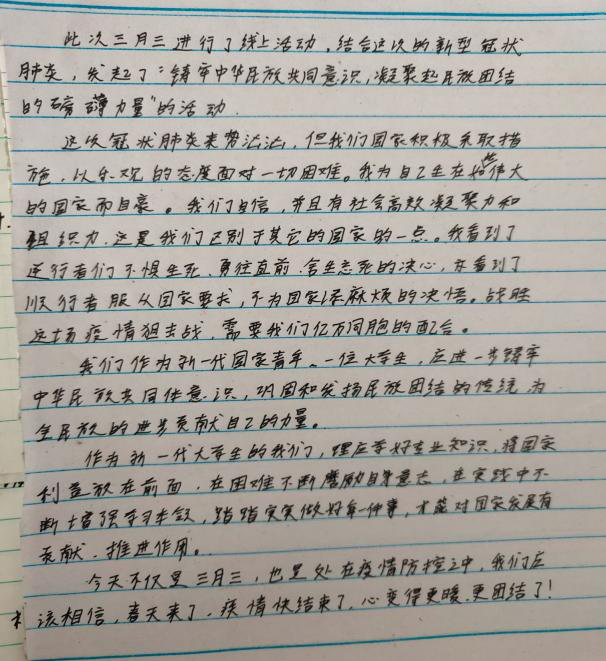 此次三月三进行了线上活动，结合这次的新型冠状
肺炎，发起了“铸牢中华民族共同意识，凝聚起民族团结
的磅礴力量”的活动.
这次冠状肺炎来势汹汹，但我们国家积极采取措
施，以乐观的态度面对一切困难。我为自己生在如此伟大
的国家而自豪。我们自信，并且有社会高效凝聚力和
组织力.这是我们区别于其它的国家的一点。我看到了
逆行者们不惧生死、勇往直前、舍生忘死的决心，亦看到了
顺行者服从国家要求，不为国家添麻烦的决悟。战胜
这场疫情狙击战，需要我们亿万同胞的配合。
我们作为新一代国家青年、一位大学生，应进一步铸牢
中华民族共同体意识，巩固和发扬民族团结的传统，为
全民族的进步贡献自己的力量。
作为新一代大学生的我们，理应学好专业知识，将国家
利益放在前面，在困难不断磨励自身意志，在实践中不
断增强学习本领，踏踏实实做好每一件事，才能对国家发展有
贡献、推进作用。
今天不仅是三月三，也是处在疫情防控之中，我们应
该相信，春天来了，疫情快结束了，心变得更暖、更团结了！